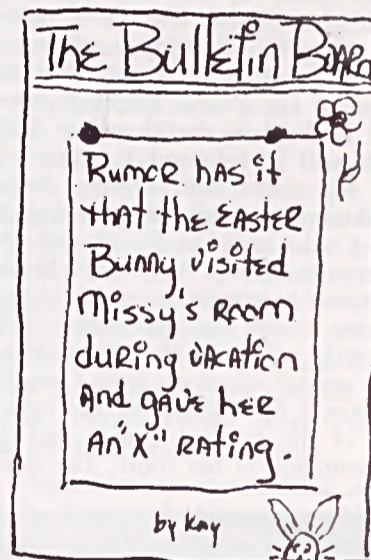 The Bulletin Board
Rumor has it
that the Easter
Bunny visited
Missy's room
during vacation
and gave her
an "X" rating.
by Kay